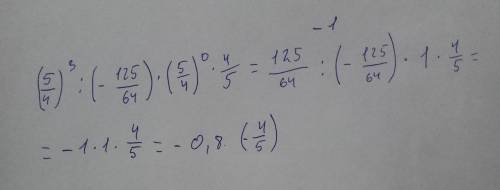 -1
(5/4)³ : (- 125/64) · (5/4)⁰ · 4/5 = 125/64 : (- 125/64) · 1 · 4/5 =
= - 1 · 1 · 4/5 = - 0,8 (- 4/5)